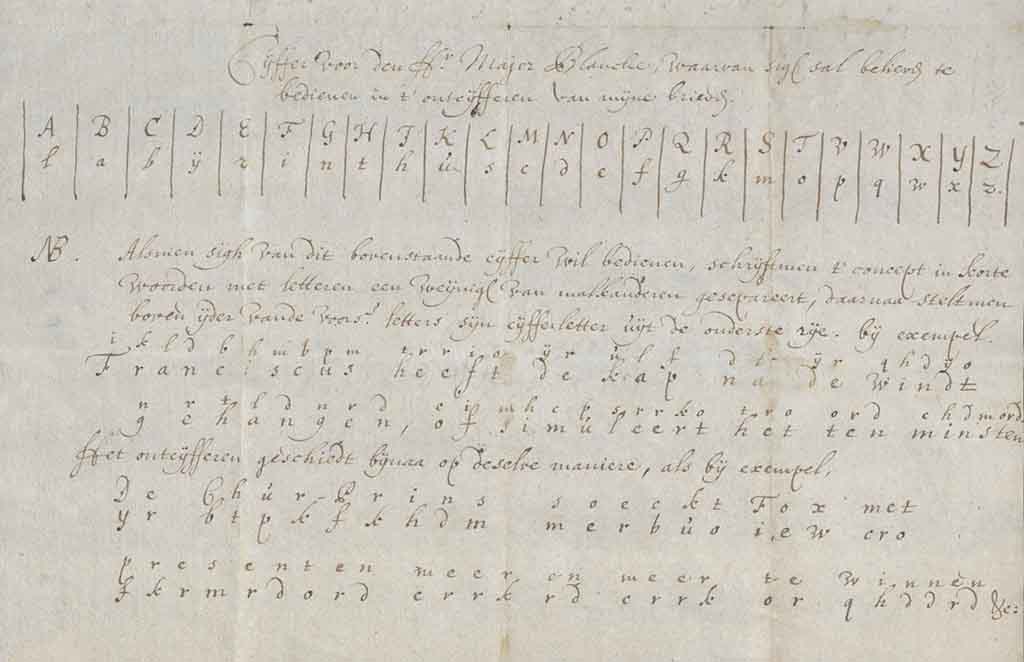 Cyffer voor den Hr. Major Blanche, waarvan sigh sal behers te
bedienen in 't ontcyfferen van myne briev.
A B C D E F G H I K L M N O P Q R S T V W X Y Z
l a b ÿ r i n t h ů s c d e f g k m o p q w x z.
NB. Alsmen sigh van dit bovenstaande cyffer wil bedienen, schryftmen t' concept in korte
woorden met letteren een weynigh van malkanderen gesepareert, daarnaa steltmen
boven yder vande voors. letters syn cyfferletter uyt de onderste rye. by exempel.
i k l d b h m b p m t r r i o ÿ r ů l f d l ÿ r q h d ÿ o
F r a n c i s c u s h e e f t d e k a p n a d e w i n d t
n r t l d n r d e i m h c p s r r k o t r o o r d c h d m o r d
g e h a n g e n, o f s i m u l e e r t h e t t e n m i n s t e n
Het ontcyfferen geschiedt bynaa op deselve maniere, als by exempel,
D e C h u r - P r i n s s o e c k t F o x m e t
ÿ r b t p k f k h d m m e r b ů o i e w c r o
p r e s e n t e n m e e r e n m e e r t e w i n n e n
f k r m r d o r d c r r k r d c r r k o r q h d d r d &c: